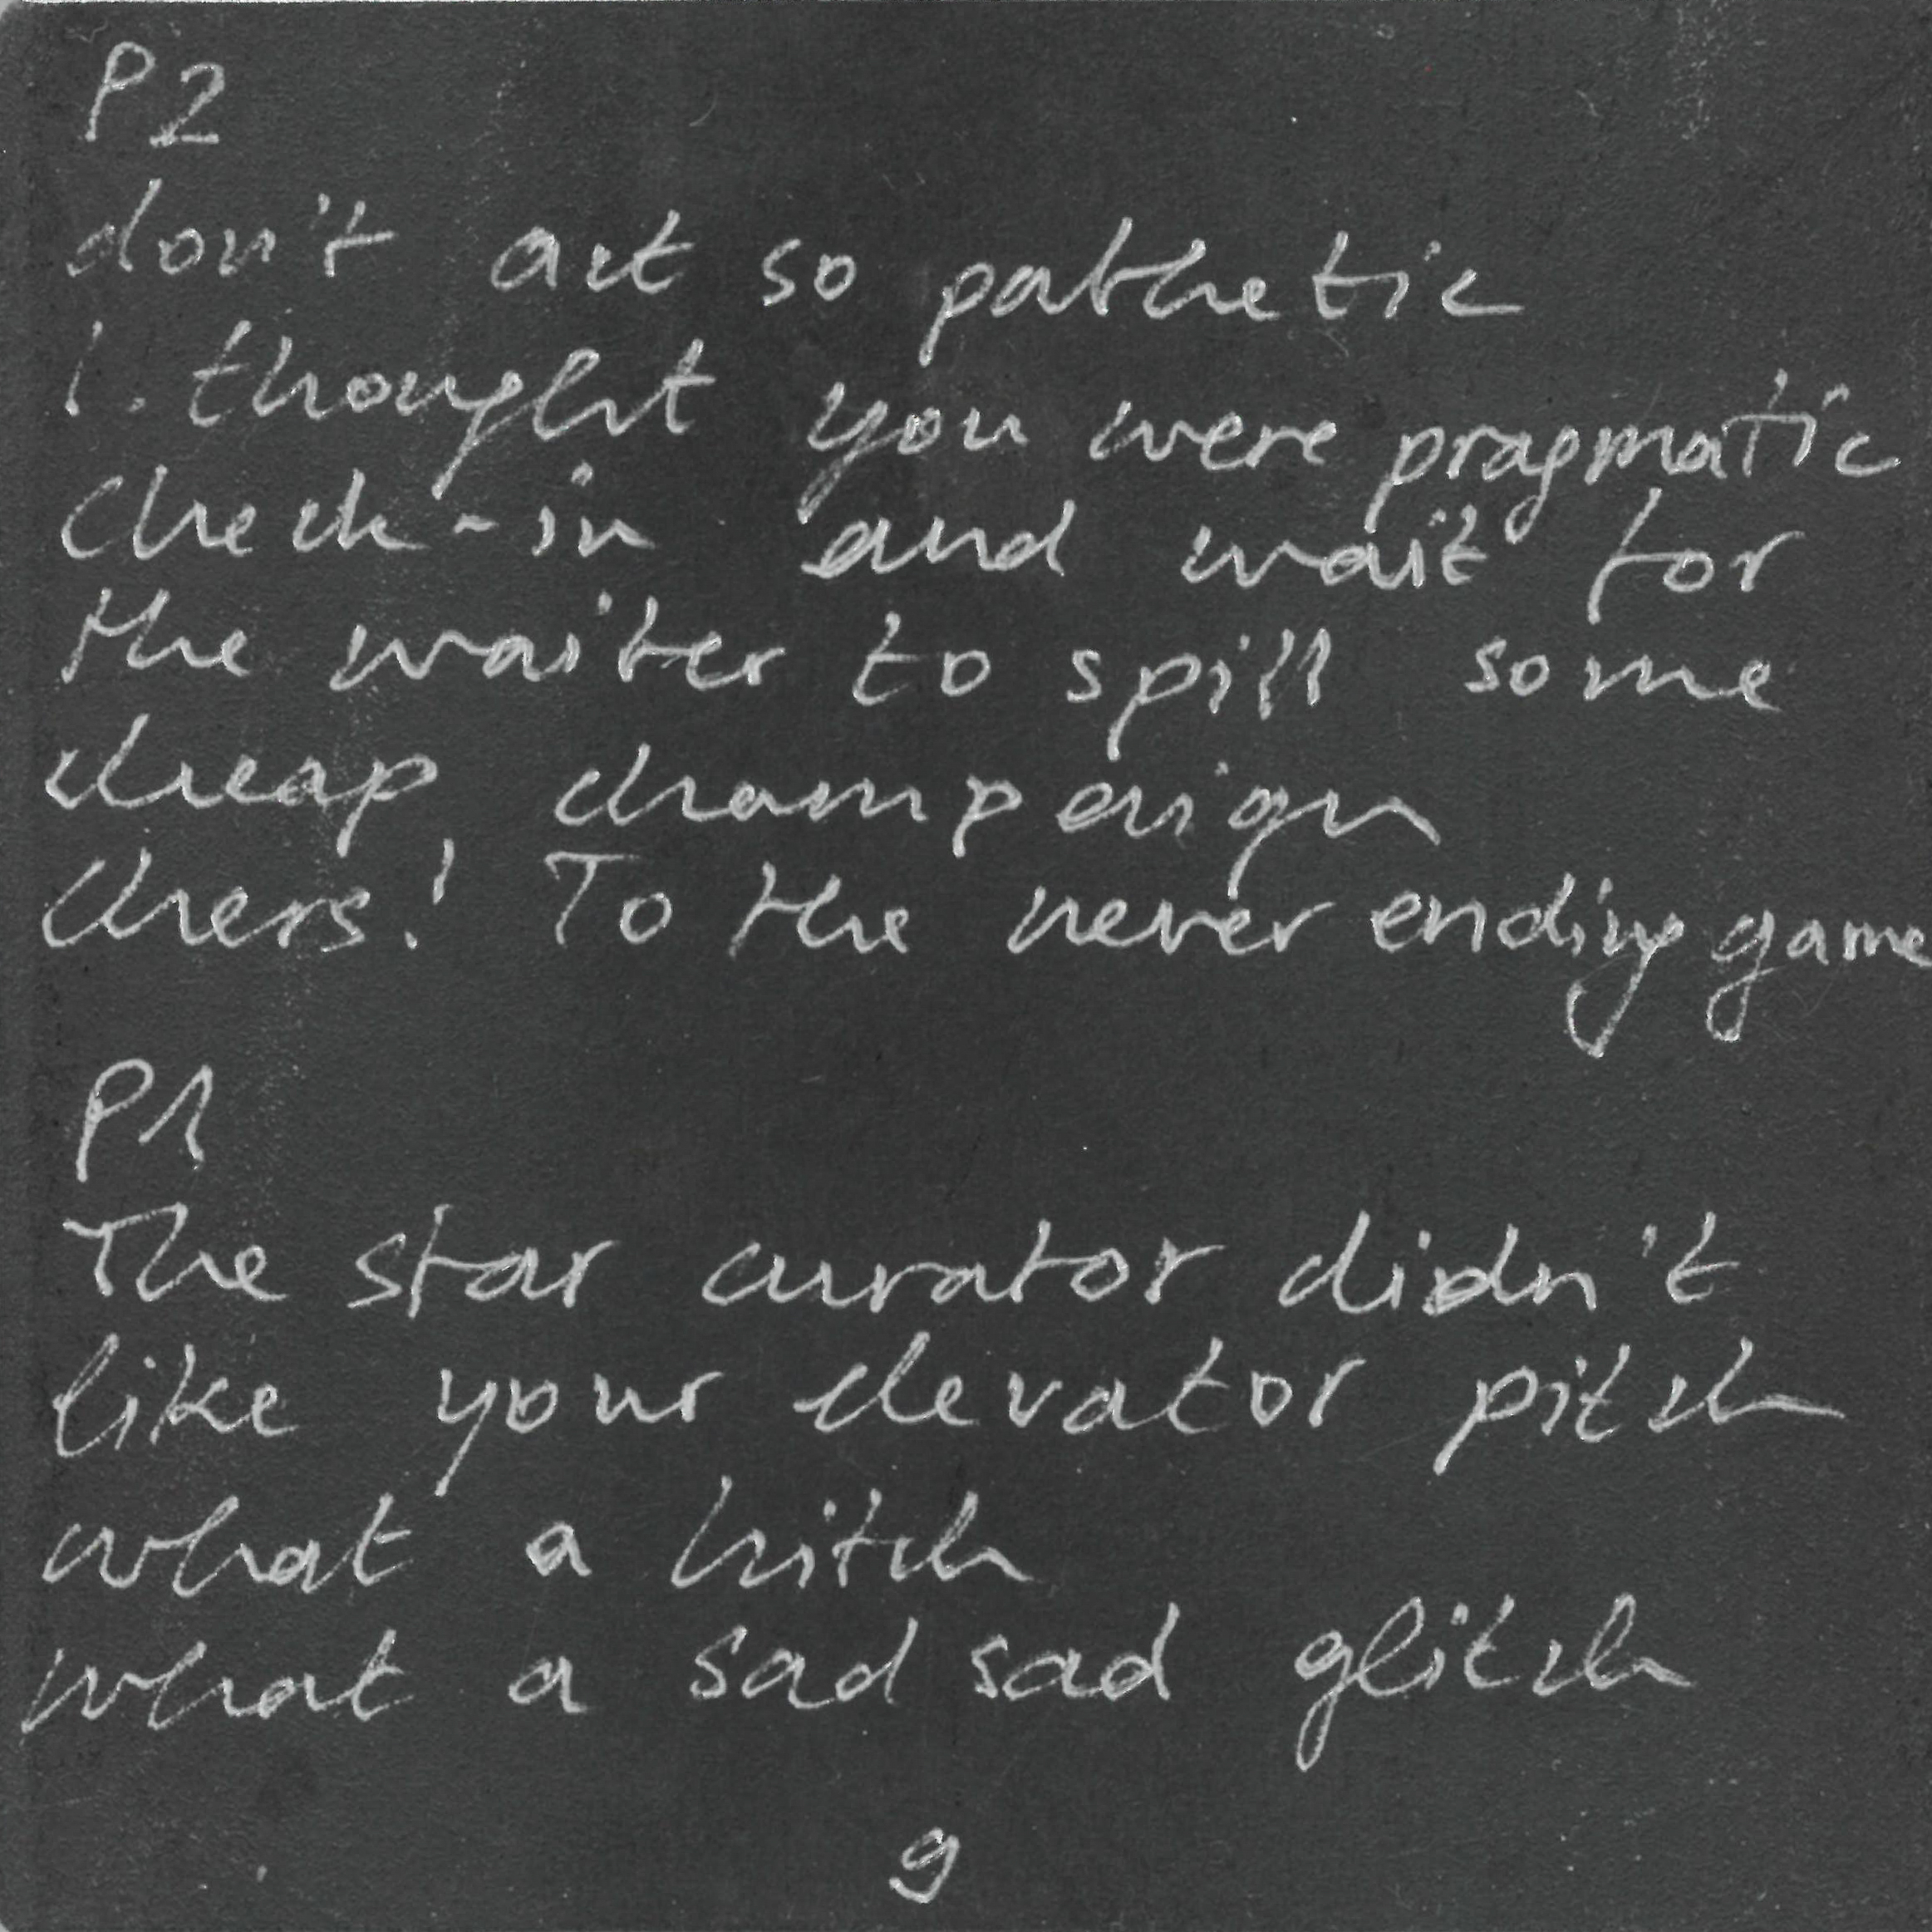 P2
don't act so pathetic
I. thought you were pragmatic
Check-in and wait for
the waiter to spill some
cheap champaign
chers! To the never ending game
P1
The star curator didn't
like your elevator pitch
what a hitch
what a sad sad glitch
9